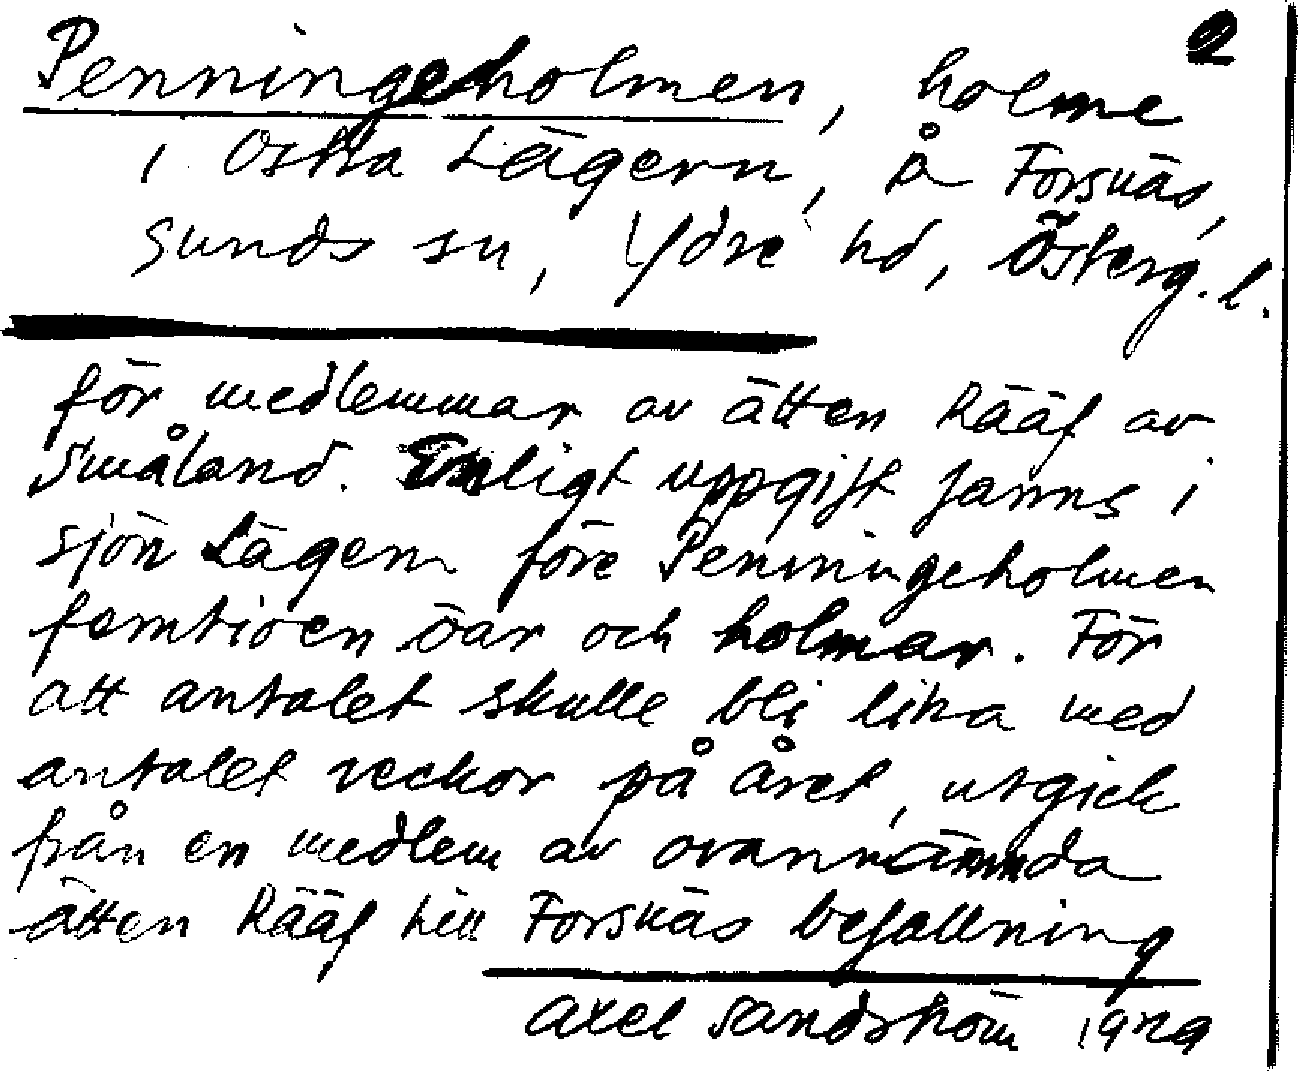 2
Penningeholmen, holme
i Östra Lägern, å Forsnäs,
Sunds sn, Ydre hd, Österg. l.
för medlemmar av ätten Rääf av
Småland. Enligt uppgift fanns i
sjön Lägern före Penningeholmen
femtioen öar och holmar. För
att antalet skulle bli lika med
antalet veckor på året, utgick
från en medlem av ovannämnda
ätten Rääf till Forsnäs befallning
Axel Sandström 1929